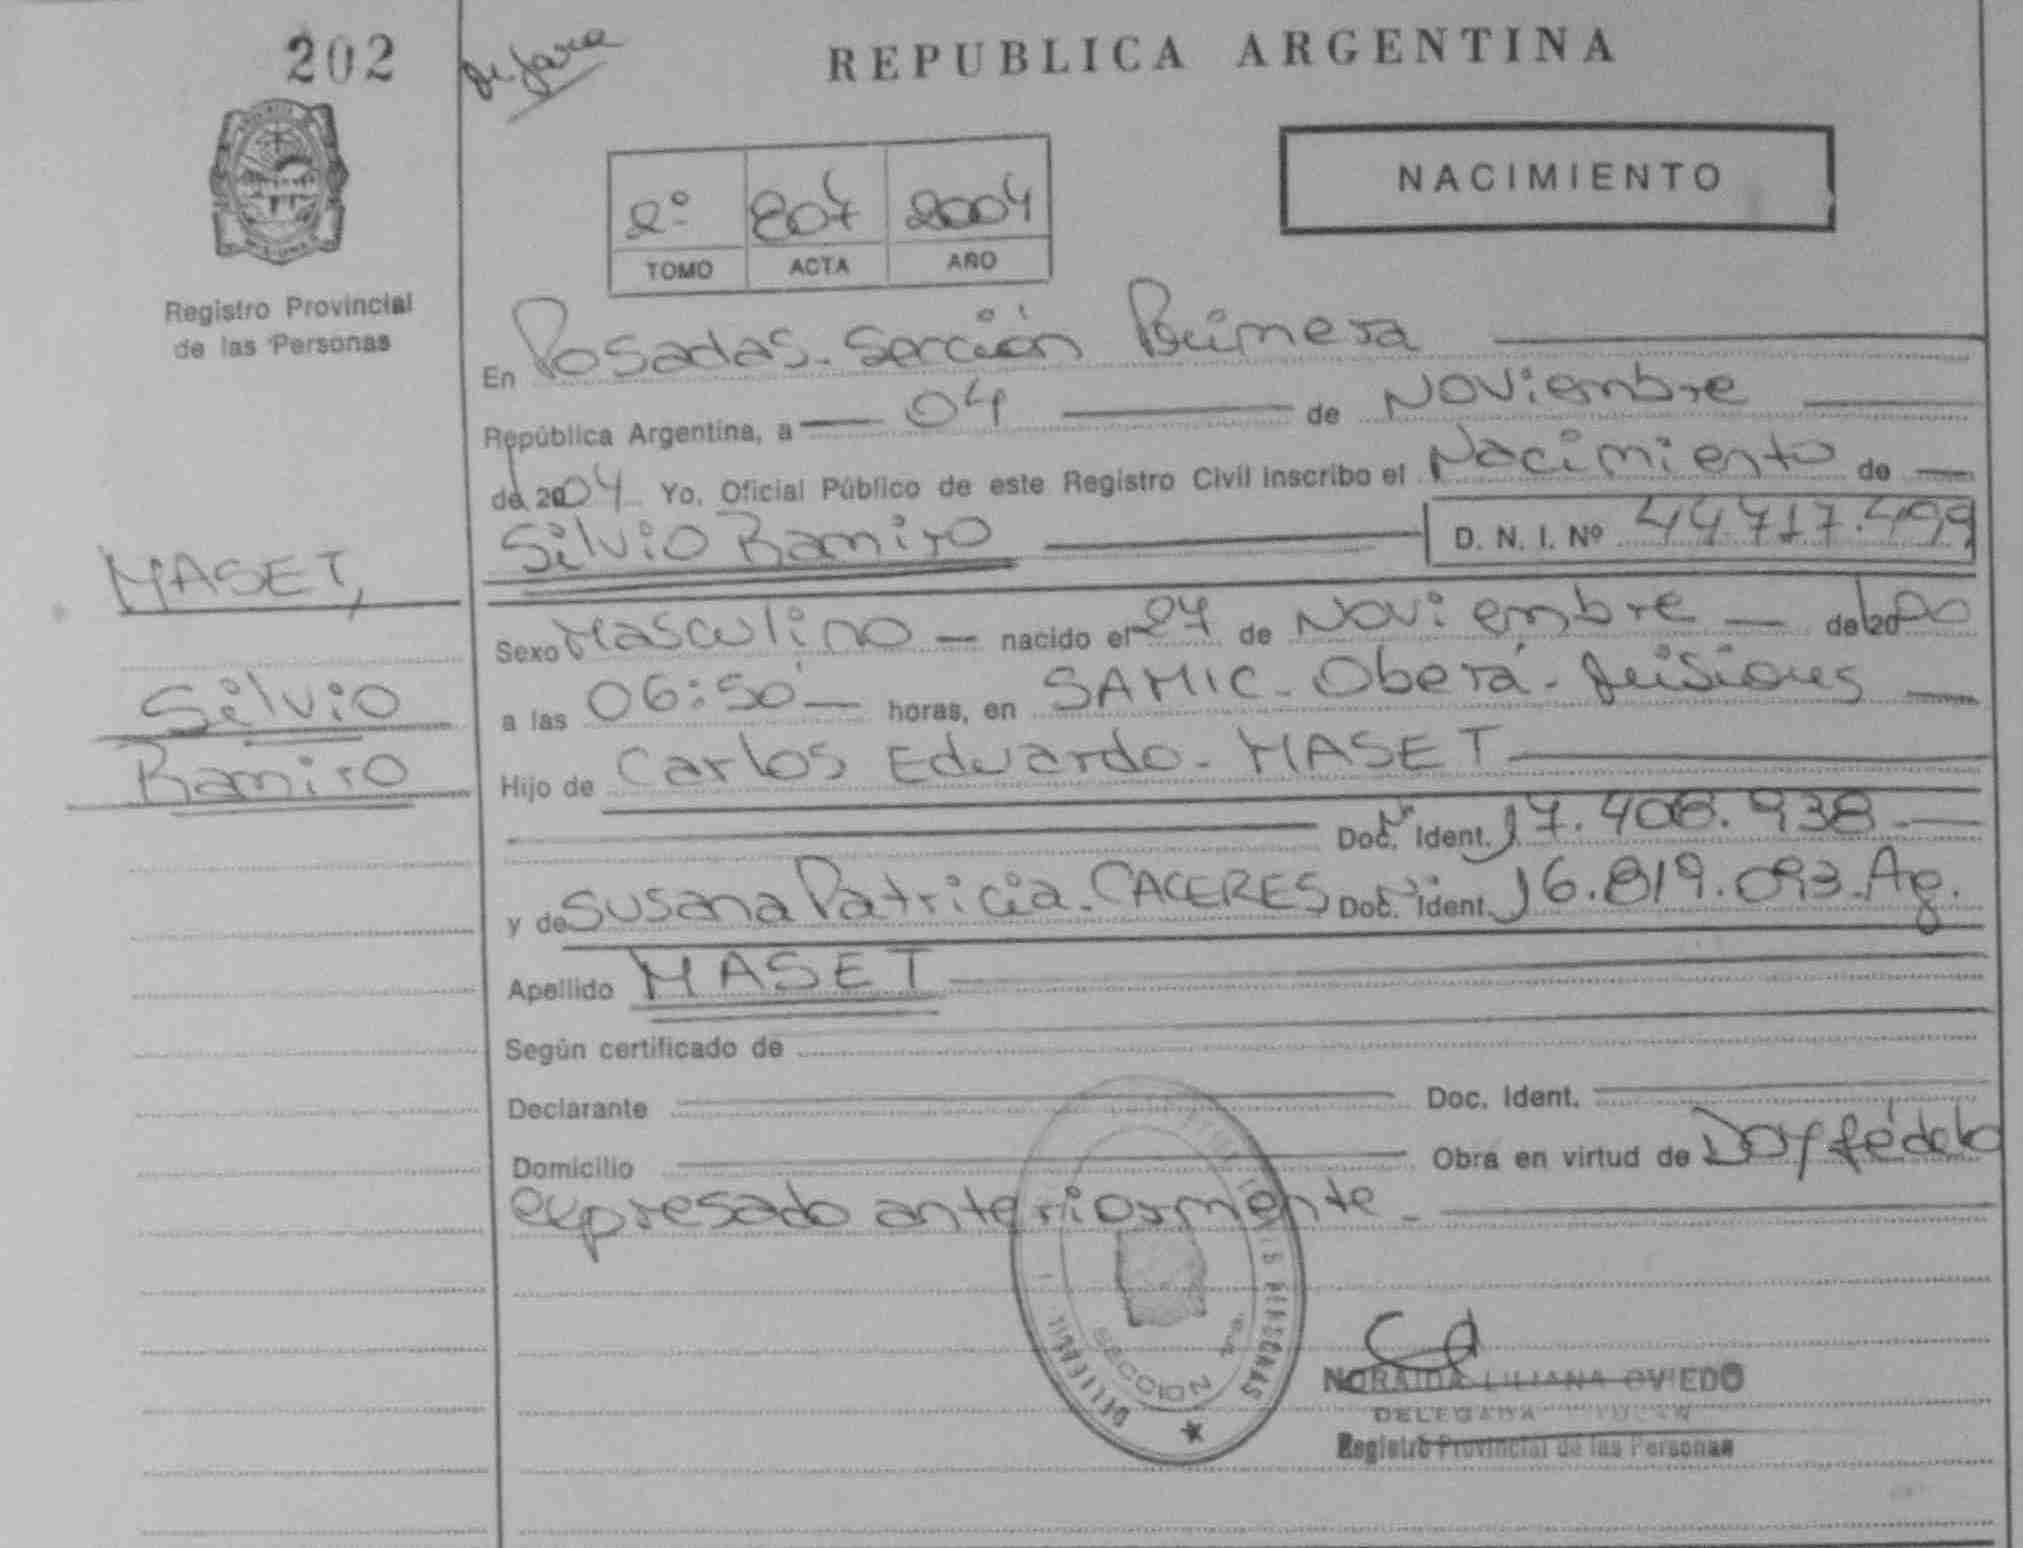 202
REPUBLICA ARGENTINA
NACIMIENTO
2º 807 2004
TOMO ACTA AÑO
Registro Provincial
de las Personas
En Posadas. Sección Primera
República Argentina, a 04 de Noviembre
de 2004 Yo, Oficial Público de este Registro Civil inscribo el Nacimiento de
Silvio Ramiro D. N. I. Nº 44.717.499
MASET,
Silvio
Ramiro
Sexo Masculino nacido el 27 de Noviembre de 2000
a las 06:50 horas, en SAMIC. Oberá. Misiones
Hijo de Carlos Eduardo. MASET
Doc. Ident. 17.408.938
y de Susana Patricia. CACERES Doc. Ident. 16.819.093. Ag.
Apellido MASET
Según certificado de
Declarante Doc. Ident.
Domicilio Obra en virtud de Doy fé de lo
expresado anteriormente.
SECCION 1ra.
PERSONAS
NORAIDA LILIANA OVIEDO
DELEGADA
Registro Provincial de las Personas